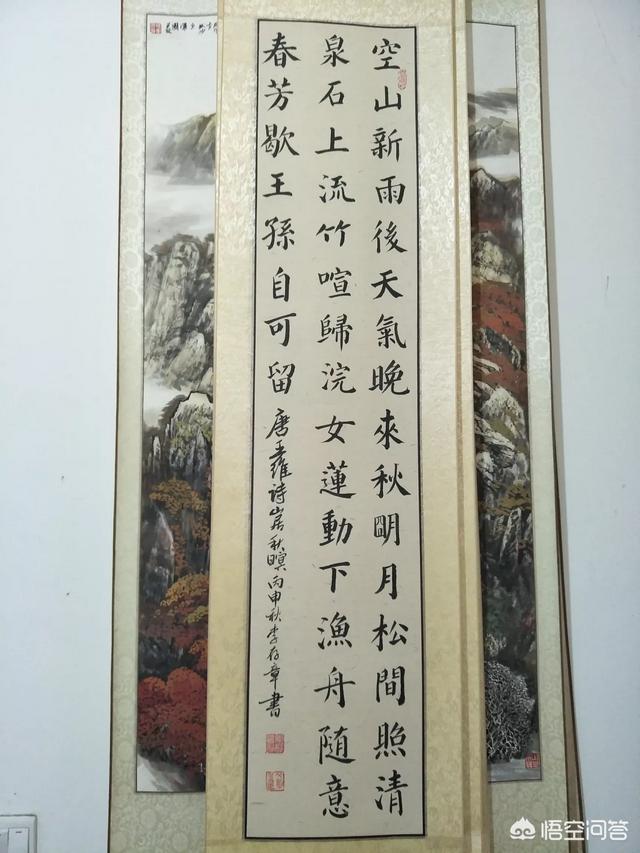 空山新雨後天氣晚來秋明月松間照清
泉石上流竹喧歸浣女蓮動下漁舟隨意
春芳歇王孫自可留唐王維詩山居秋暝丙申秋李存章書
悟空问答